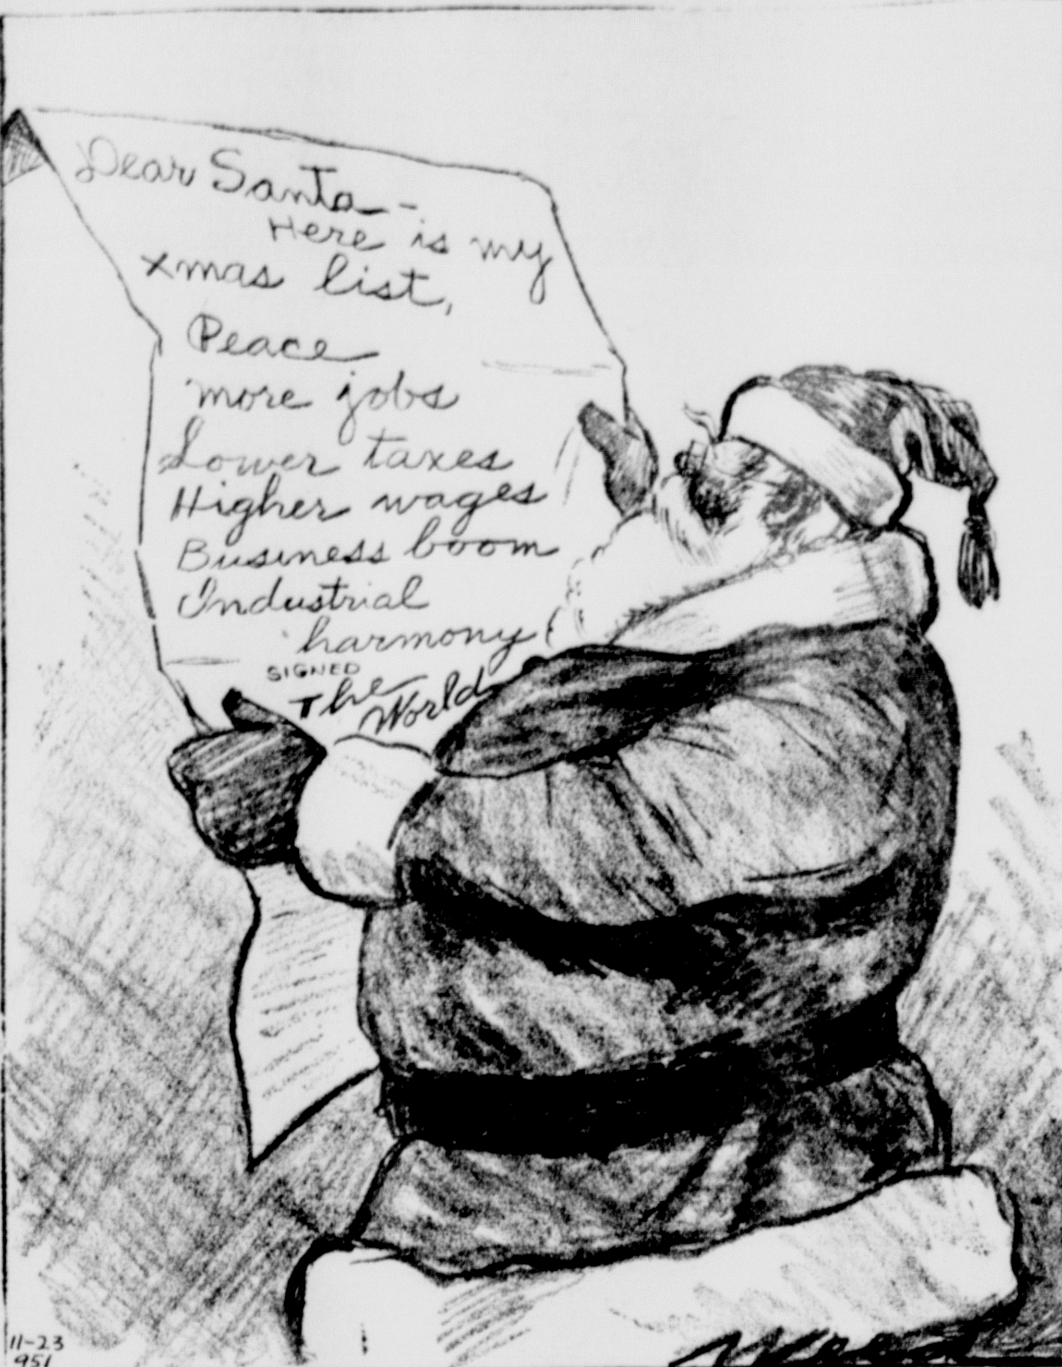 Dear Santa -
Here is my
xmas list,
Peace
more jobs
Lower taxes
Higher wages
Business boom
Industrial
harmony
SIGNED
The World
11-23
951